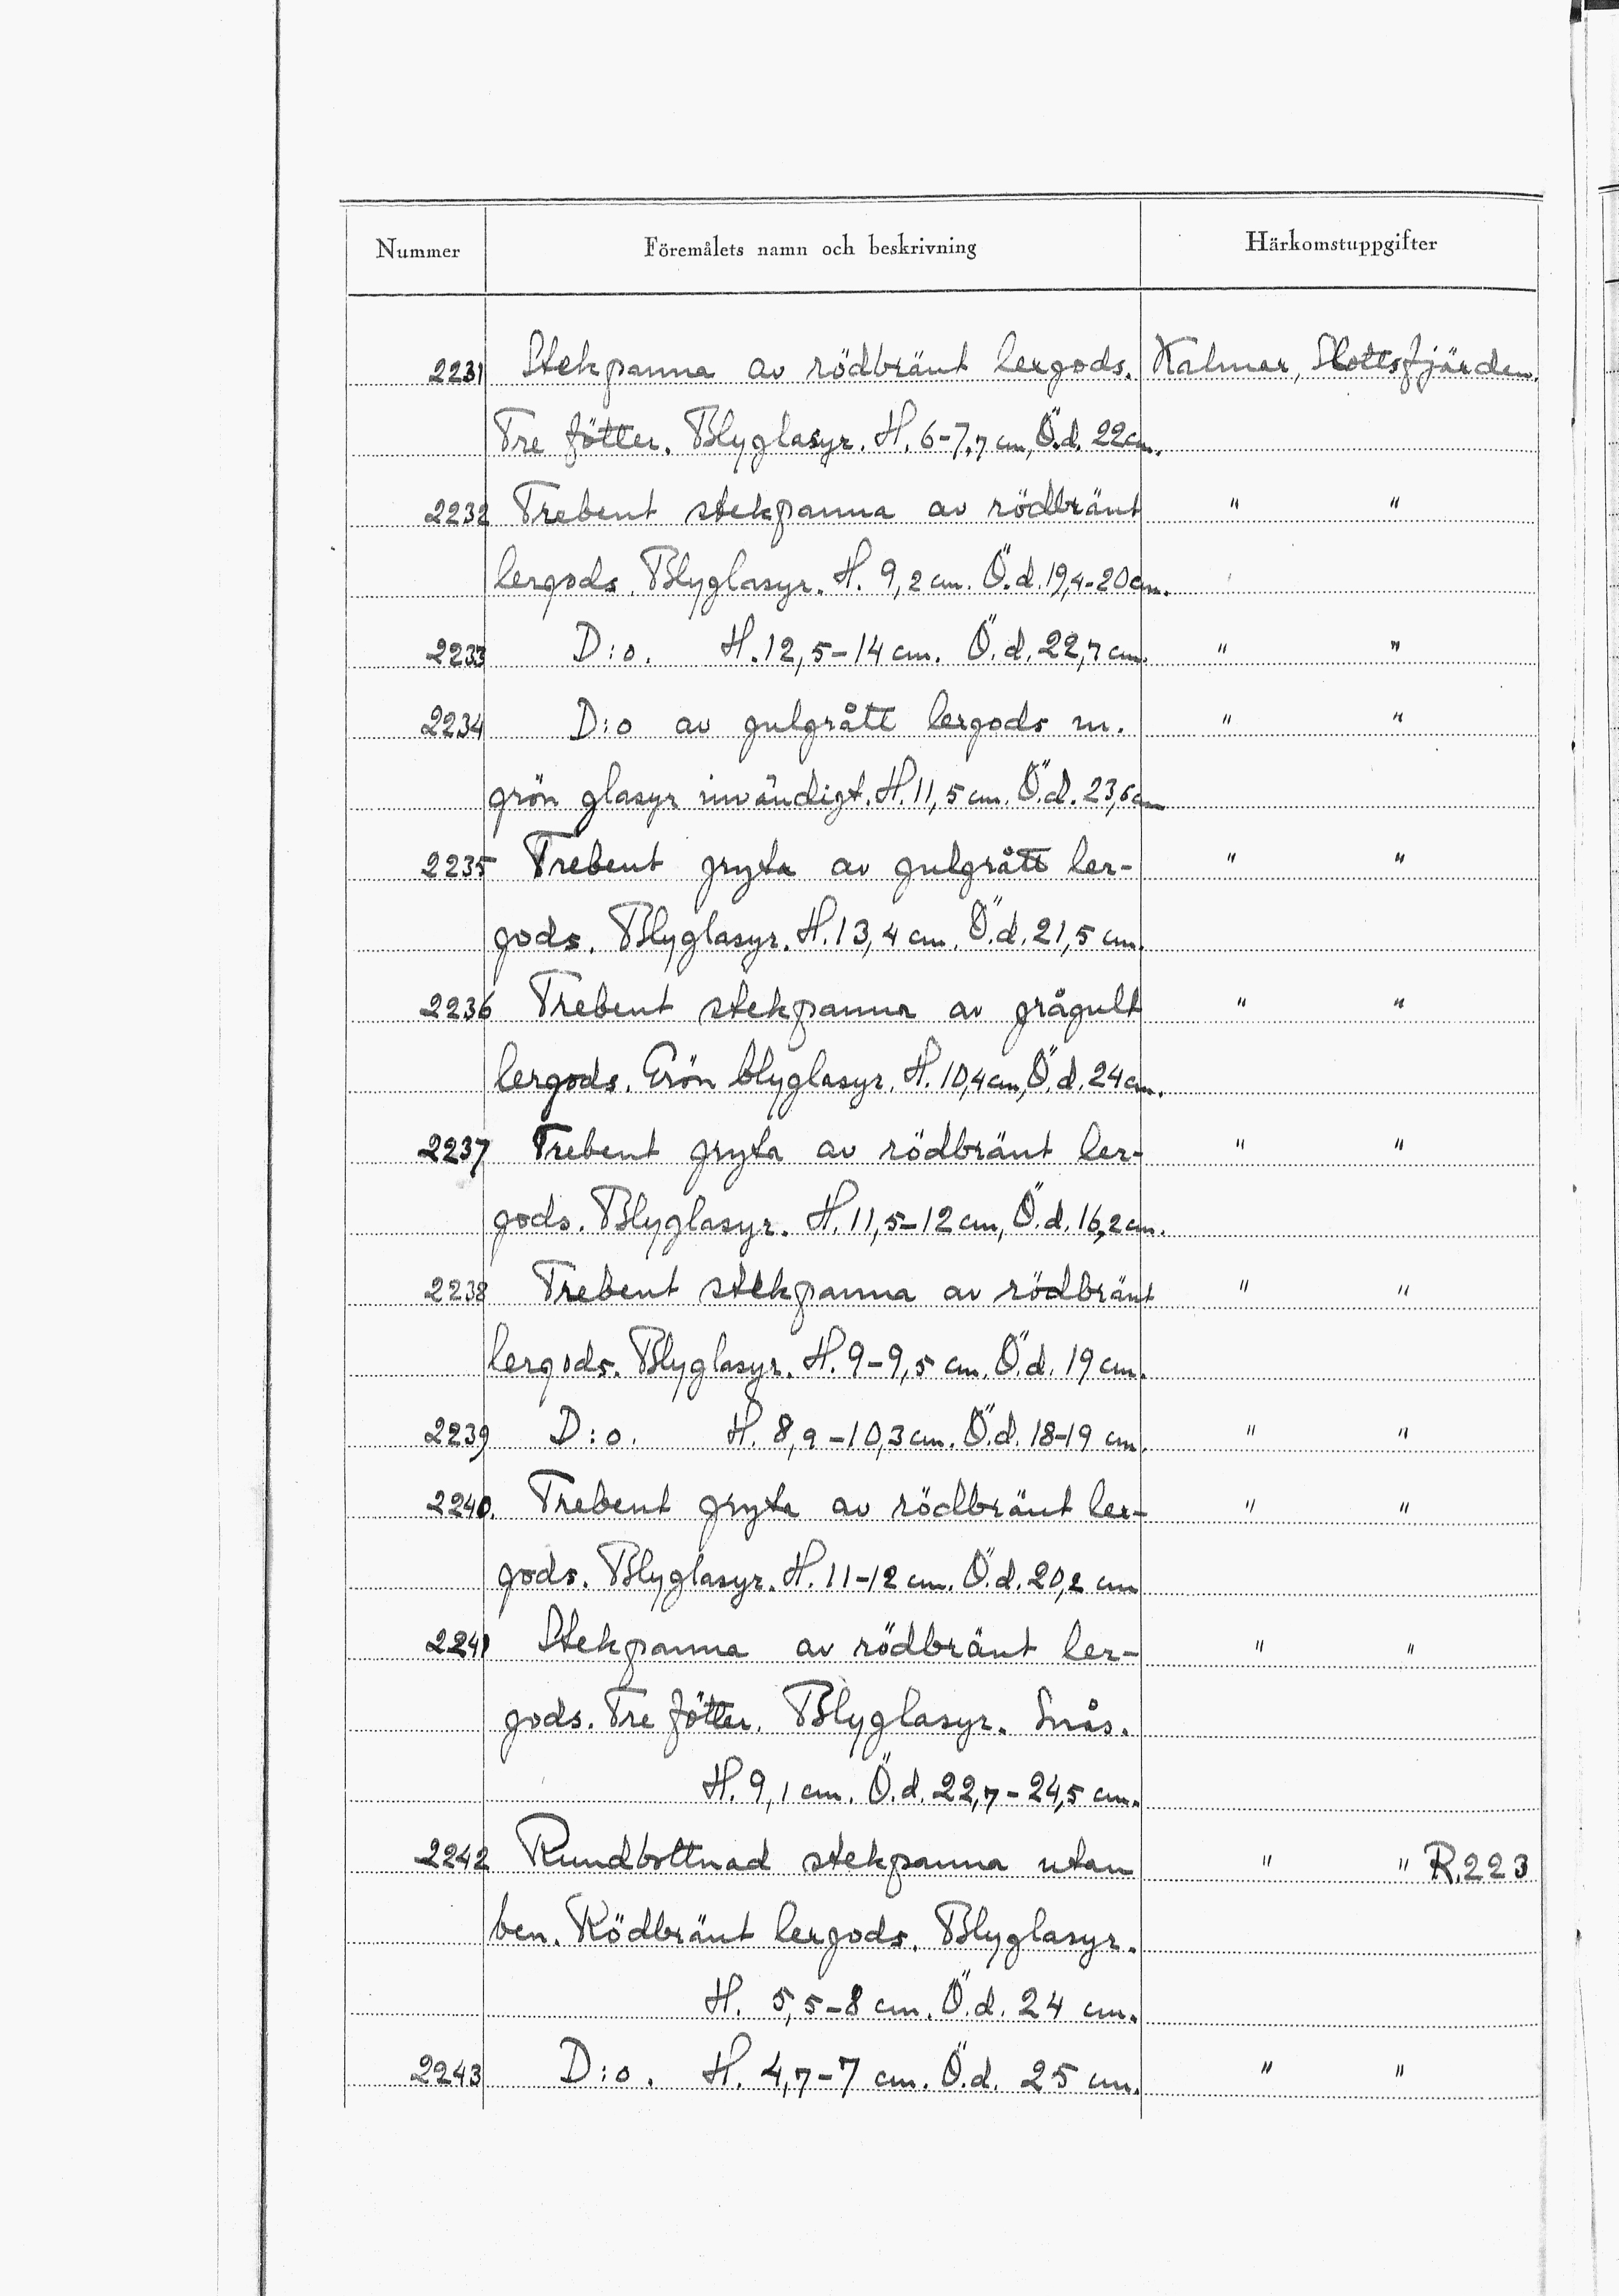 Nummer Föremålets namn och beskrivning Härkomstuppgifter
2231 Stekpanna av rödbränt lergods. Kalmar, Slottsfjärden.
Tre fötter. Blyglasyr. H. 6-7,7 cm, Ö.d. 22 cm.
2232 Trebent stekpanna av rödbränt " "
lergods. Blyglasyr. H. 9,2 cm. Ö.d. 19,4-20 cm.
2233 D:o. H. 12,5-14 cm. Ö.d. 22,7 cm. " "
2234 D:o av gulgrått lergods m. " "
grön glasyr invändigt. H. 11,5 cm. Ö.d. 23,6 cm
2235 Trebent gryta av gulgrått ler- " "
gods. Blyglasyr. H. 13,4 cm. Ö.d. 21,5 cm.
2236 Trebent stekpanna av grågult " "
lergods. Grön blyglasyr. H. 10,4 cm, Ö.d. 24 cm.
2237 Trebent gryta av rödbränt ler- " "
gods. Blyglasyr. H. 11,5-12 cm, Ö.d. 16,2 cm.
2238 Trebent stekpanna av rödbränt " "
lergods. Blyglasyr. H. 9-9,5 cm. Ö.d. 19 cm.
2239 D:o. H. 8,9-10,3 cm. Ö.d. 18-19 cm. " "
2240. Trebent gryta av rödbränt ler- " "
gods. Blyglasyr. H. 11-12 cm. Ö.d. 20,2 cm
2241 Stekpanna av rödbränt ler- " "
gods. Tre fötter. Blyglasyr. Snås.
H. 9,1 cm. Ö.d. 22,7-24,5 cm.
2242 Rundbottnad stekpanna utan " " R.223
ben. Rödbränt lergods. Blyglasyr.
H. 5,5-8 cm. Ö.d. 24 cm.
2243 D:o. H. 4,7-7 cm. Ö.d. 25 cm. " "